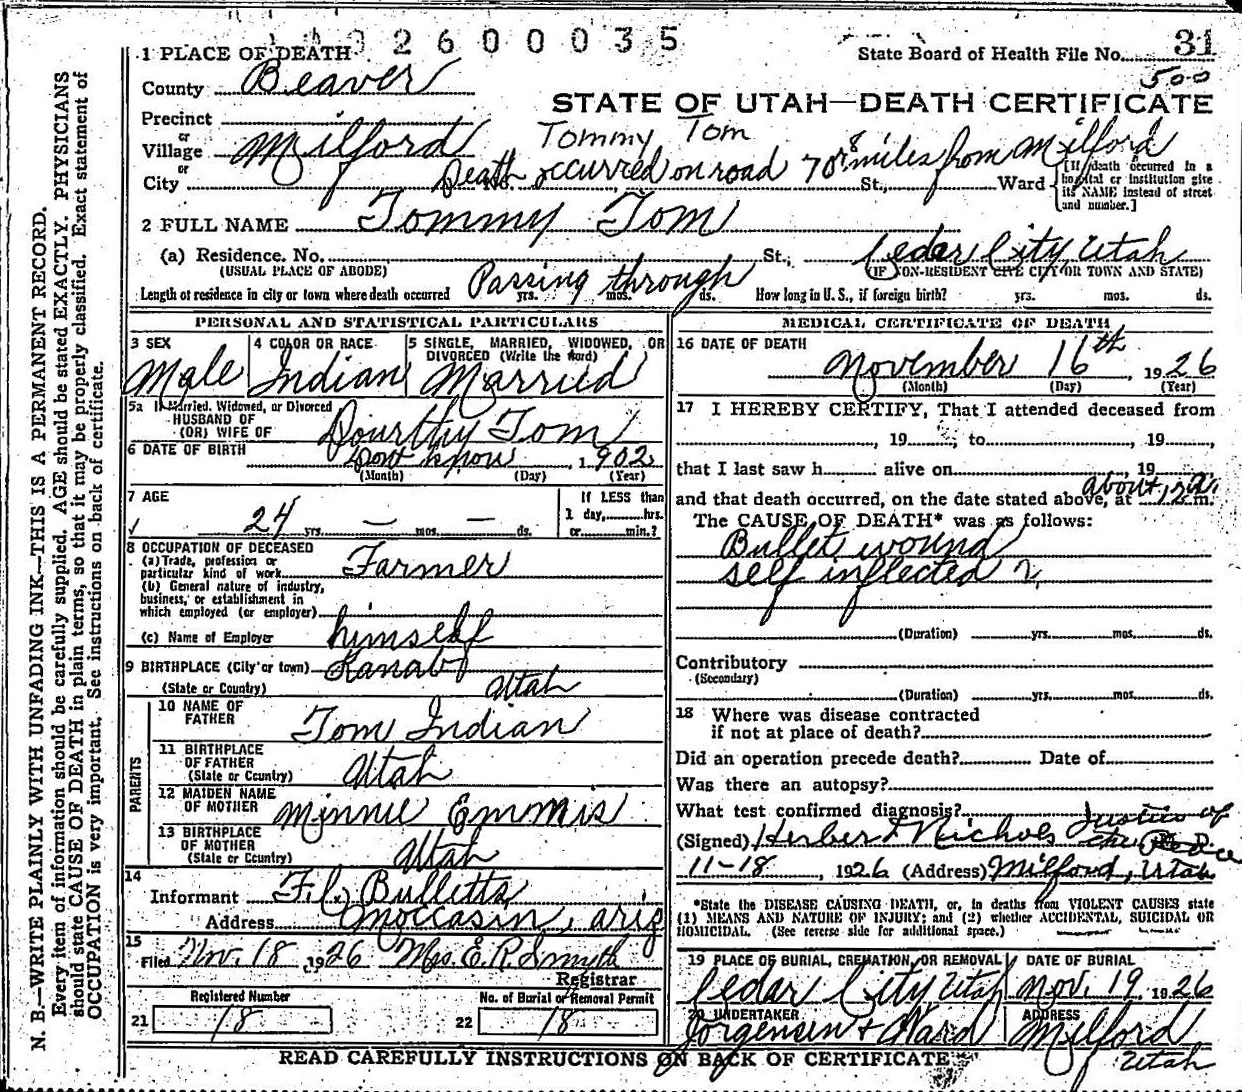 2600035
1 PLACE OF DEATH
State Board of Health File No. 31
County Beaver
500
STATE OF UTAH—DEATH CERTIFICATE
Precinct
Tommy Tom
or
Village Milford
Death occurred on road 70 miles from Milford
or
City No. St., Ward
[If death occurred in a hospital or institution give its NAME instead of street and number.]
2 FULL NAME Tommy Tom
(a) Residence. No. St., Cedar City, Utah
(USUAL PLACE OF ABODE) (IF NON-RESIDENT GIVE CITY OR TOWN AND STATE)
Length of residence in city or town where death occurred Passing through yrs. mos. ds. How long in U. S., if foreign birth? yrs. mos. ds.
PERSONAL AND STATISTICAL PARTICULARS
3 SEX 4 COLOR OR RACE 5 SINGLE, MARRIED, WIDOWED, OR
DIVORCED (Write the word)
Male Indian Married
5a If Married, Widowed, or Divorced
HUSBAND OF
(OR) WIFE OF Dourthy Tom
6 DATE OF BIRTH Dont know , 1902
(Month) (Day) (Year)
7 AGE If LESS than
1 day, hrs.
24 yrs. — mos. — ds. or min.?
8 OCCUPATION OF DECEASED
(a) Trade, profession or
particular kind of work Farmer
(b) General nature of industry,
business, or establishment in
which employed (or employer)
(c) Name of Employer himself
9 BIRTHPLACE (City or town) Kanab
(State or Country) Utah
PARENTS
10 NAME OF
FATHER Tom Indian
11 BIRTHPLACE
OF FATHER
(State or Country) Utah
12 MAIDEN NAME
OF MOTHER Minnie Emmis
13 BIRTHPLACE
OF MOTHER
(State or Country) Utah
14
Informant F. C. Bulletts
Address Moccasin, Ariz
15
Filed Nov. 18, 1926 Mrs. E. R. Smyth
Registrar
Registered Number No. of Burial or Removal Permit
21 18 22 18
MEDICAL CERTIFICATE OF DEATH
16 DATE OF DEATH
November 16th, 1926
(Month) (Day) (Year)
17 I HEREBY CERTIFY, That I attended deceased from
, 19 , to , 19 ,
that I last saw h alive on , 19
and that death occurred, on the date stated above, at about 12 a. m.
The CAUSE OF DEATH* was as follows:
Bullet wound
self inflected
(Duration) yrs. mos. ds.
Contributory
(Secondary)
(Duration) yrs. mos. ds.
18 Where was disease contracted
if not at place of death?
Did an operation precede death? Date of
Was there an autopsy?
What test confirmed diagnosis?
(Signed) Herbert Nichols Justice of
the Peace
11-18, 1926 (Address) Milford, Utah
*State the DISEASE CAUSING DEATH, or, in deaths from VIOLENT CAUSES state
(1) MEANS AND NATURE OF INJURY; and (2) whether ACCIDENTAL, SUICIDAL OR
HOMICIDAL. (See reverse side for additional space.)
19 PLACE OF BURIAL, CREMATION, OR REMOVAL DATE OF BURIAL
Cedar City, Utah Nov. 19 1926
20 UNDERTAKER ADDRESS
Jorgensen & Ward Milford
Utah
READ CAREFULLY INSTRUCTIONS ON BACK OF CERTIFICATE
N. B.—WRITE PLAINLY WITH UNFADING INK—THIS IS A PERMANENT RECORD.
Every item of information should be carefully supplied. AGE should be stated EXACTLY. PHYSICIANS
should state CAUSE OF DEATH in plain terms, so that it may be properly classified. Exact statement of
OCCUPATION is very important. See instructions on back of certificate.